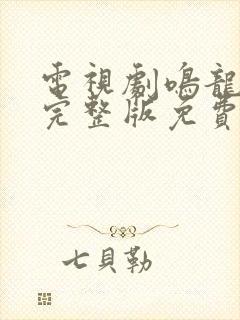 電視劇鳴龍
完整版免費
七貝勒